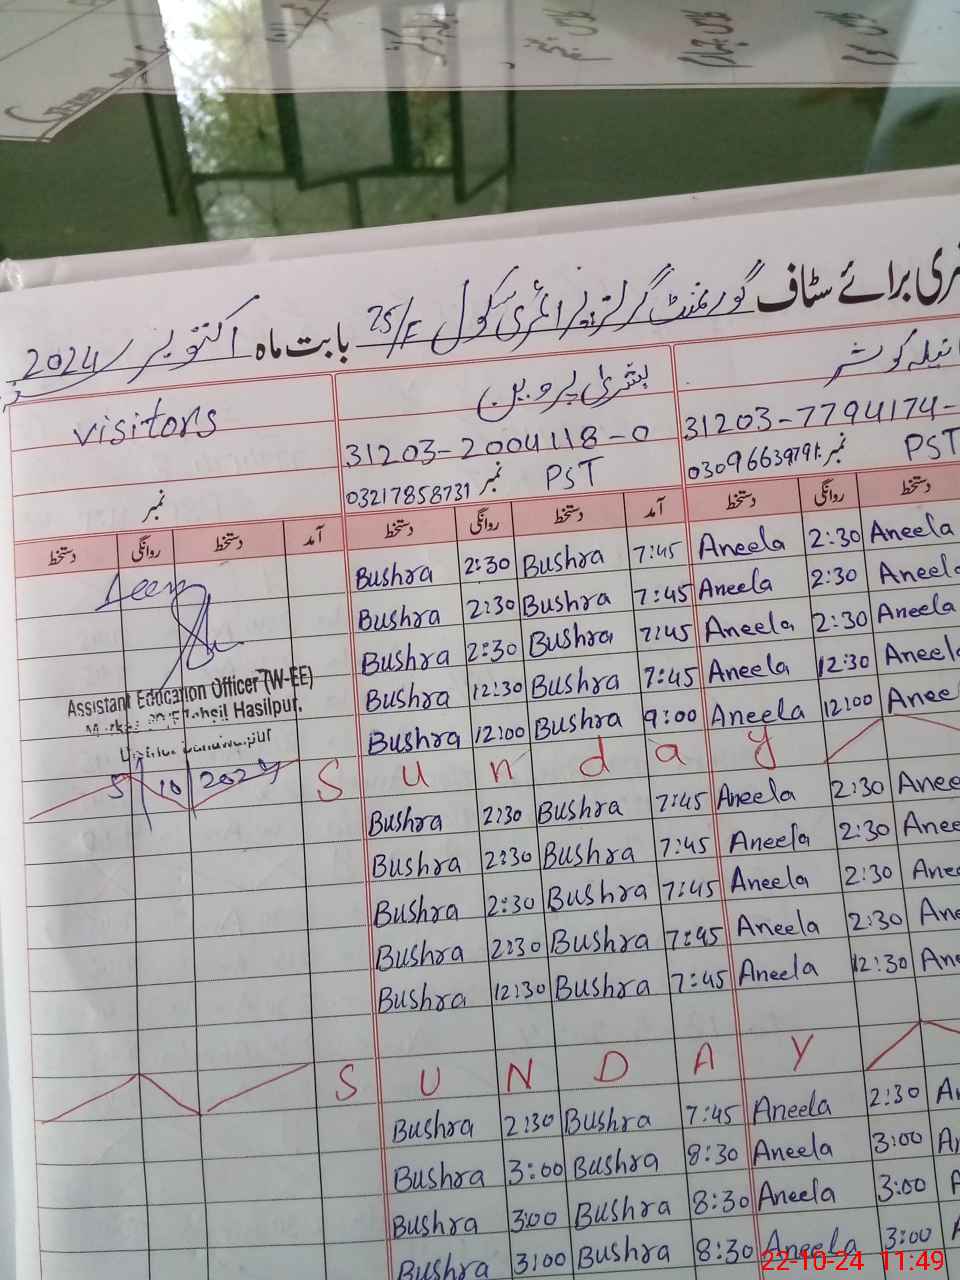 برائے سٹاف گورنمنٹ گرلز پرائمری سکول 25/F بابت ماہ اکتوبر 2024
visitors
نمبر
بشریٰ پروین
31203-2004118-0
03217858731 نمبر PST
انیلہ کوثر
31203-7794174-
نمبر PST
دستخط روانگی دستخط آمد دستخط روانگی دستخط آمد دستخط روانگی دستخط
Bushra 2:30 Bushra 7:45 Aneela 2:30 Aneela
Bushra 2:30 Bushra 7:45 Aneela 2:30 Aneela
Bushra 2:30 Bushra 7:45 Aneela 2:30 Aneela
Bushra 12:30 Bushra 7:45 Aneela 12:30 Aneela
Bushra 12:00 Bushra 9:00 Aneela 12:00 Anee
Seen
Assistant Education Officer (W-EE)
Tehsil Hasilpur.
5/10/2024
Sunday
Bushra 2:30 Bushra 7:45 Aneela 2:30 Anee
Bushra 2:30 Bushra 7:45 Aneela 2:30 Anee
Bushra 2:30 Bushra 7:45 Aneela 2:30 Anee
Bushra 2:30 Bushra 7:45 Aneela 2:30 An
Bushra 12:30 Bushra 7:45 Aneela 12:30 An
SUNDAY
Bushra 2:30 Bushra 7:45 Aneela 2:30 A
Bushra 3:00 Bushra 8:30 Aneela 3:00 A
Bushra 3:00 Bushra 8:30 Aneela 3:00 A
Bushra 3:00 Bushra 8:30 Aneela 3:00
22-10-24 11:49